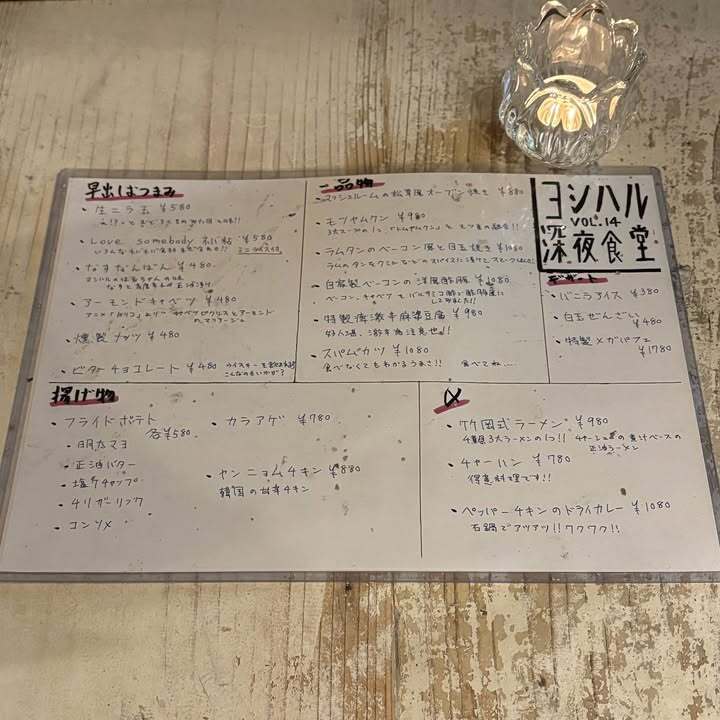 ヨシハル
VOL.14
深夜食堂
早出しおつまみ
・生ニラ玉 ¥580
・Love somebody ねば帖 ¥580
・なすなんばん ¥480
・アーモンドキャベツ ¥480
・燻製ナッツ ¥480
・ビターチョコレート ¥480
一品物
・マッシュルームの松茸風オーブン焼き ¥880
・モツヤムクン ¥980
・ラムタンのベーコン風と目玉焼き ¥1080
・自家製ベーコンの洋風酢豚 ¥1080
ベーコン、キャベツ と バルサミコ酢で酢豚風に
してみました!!
・特製薄激辛麻婆豆腐 ¥980
・スパムカツ ¥1080
食べなくてもわかるうまさ!! 食べてね...
デザート
・バニラアイス ¥380
・白玉ぜんざい
¥480
・特製メガパフェ
¥1780
揚げ物
・フライドポテト
各¥580
・明太マヨ
・正油バター
・塩ケチャップ
・チリガーリック
・コンソメ
・カラアゲ ¥780
・ヤンニョムチキン ¥880
韓国の甘辛チキン
〆
・竹岡式ラーメン ¥980
・チャーハン ¥780
得意料理です!!
・ペッパーチキンのドライカレー ¥1080
石鍋でアツアツ!! ワクワク!!